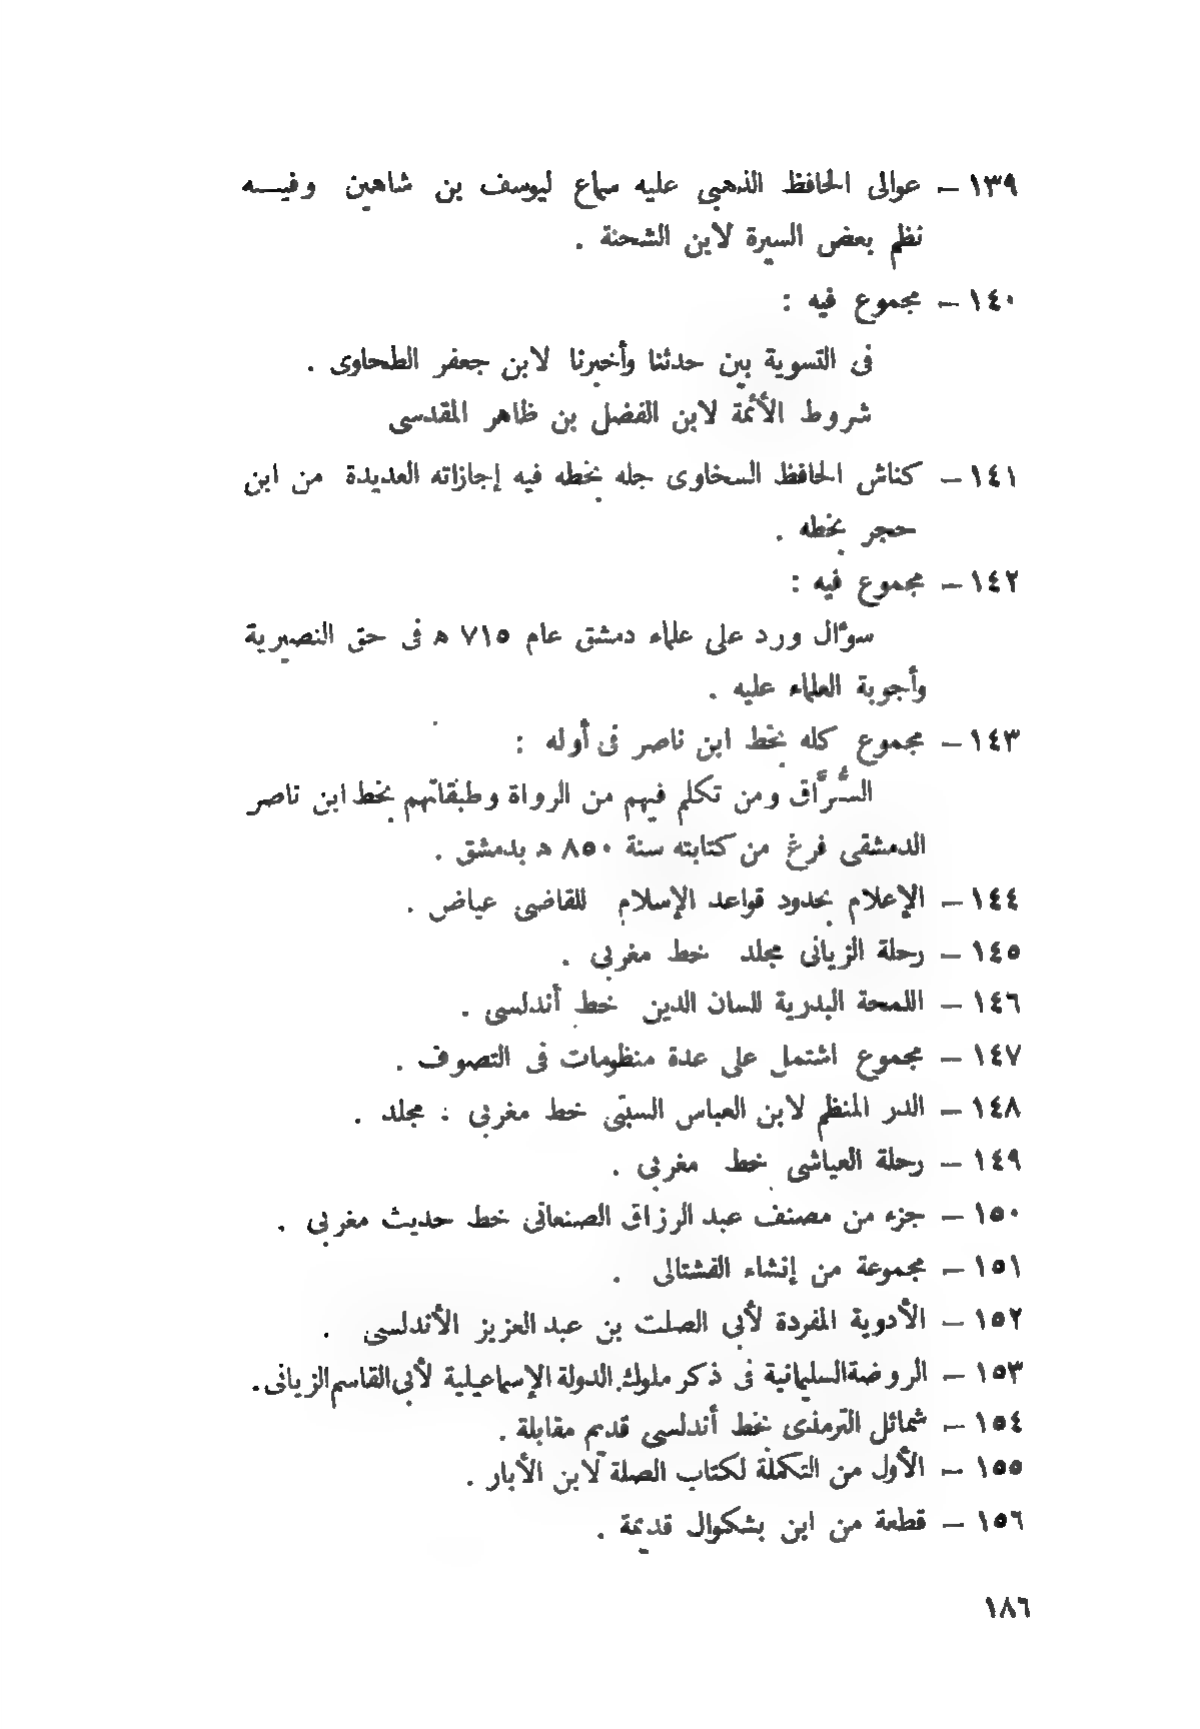 ١٣٩ – عوالى الحافظ الذهبى عليه سماع ليوسف بن شاهين وفيـــه
نظم بعض السيرة لابن الشحنة .
١٤٠ – مجموع فيه :
فى التسوية بين حدثنا وأخبرنا لابن جعفر الطحاوى .
شروط الأئمة لابن الفضل بن ظاهر المقدسى
١٤١ – كناش الحافظ السخاوى جله بخطه فيه إجازاته العديدة من ابن
حجر بخطه .
١٤٢ – مجموع فيه :
سؤال ورد على علماء دمشق عام ٧١٥ ه فى حق النصيرية
وأجوبة العلماء عليه .
١٤٣ – مجموع كله بخط ابن ناصر فى أوله :
السُّرَّاق ومن تكلم فيهم من الرواة وطبقاتهم بخط ابن ناصر
الدمشقى فرغ من كتابته سنة ٨٥٠ ه بدمشق .
١٤٤ – الإعلام بحدود قواعد الإسلام للقاضى عياض .
١٤٥ – رحلة الزيانى مجلد خط مغربى .
١٤٦ – اللمحة البدرية للسان الدين خط أندلسى .
١٤٧ – مجموع اشتمل على عدة منظومات فى التصوف .
١٤٨ – الدر المنظم لابن العباس السبتى خط مغربى : مجلد .
١٤٩ – رحلة العياشى خط مغربى .
١٥٠ – جزء من مصنف عبد الرزاق الصنعانى خط حديث مغربى .
١٥١ – مجموعة من إنشاء الفشتالى .
١٥٢ – الأدوية المفردة لأبى الصلت بن عبد العزيز الأندلسى .
١٥٣ – الروضة السليمانية فى ذكر ملوك الدولة الإسماعيلية لأبى القاسم الزيانى .
١٥٤ – شمائل الترمذى بخط أندلسى قديم مقابلة .
١٥٥ – الأول من التكملة لكتاب الصلة لابن الأبار .
١٥٦ – قطعة من ابن بشكوال قديمة .
١٨٦